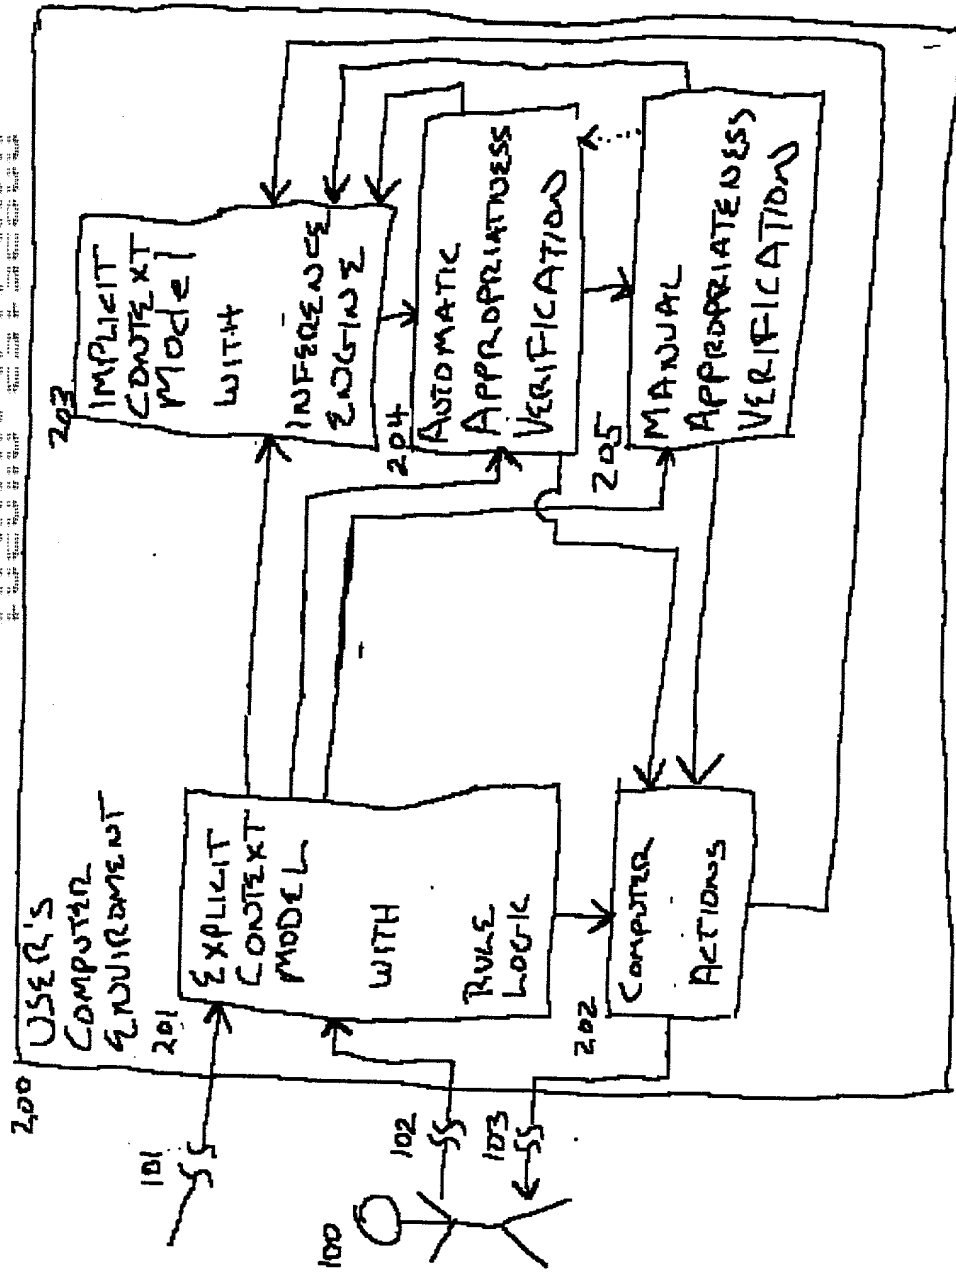 200
USER'S
COMPUTER
ENVIRONMENT
201
EXPLICIT
CONTEXT
MODEL
WITH
RULE
LOGIC
202
COMPUTER
ACTIONS
203
IMPLICIT
CONTEXT
Model
WITH
INFERENCE
ENGINE
204
AUTOMATIC
APPROPRIATNESS
VERIFICATION
205
MANUAL
APPROPRIATENESS
VERIFICATION
101
102
103
100